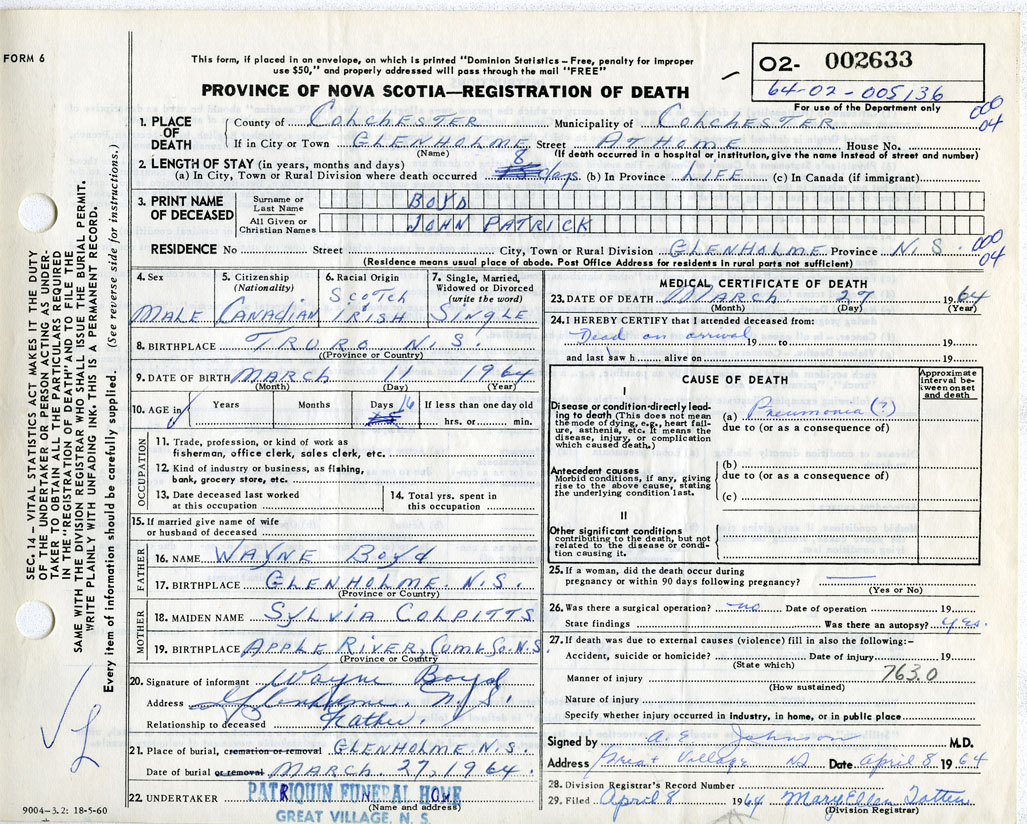 FORM 6
This form, if placed in an envelope, on which is printed "Dominion Statistics – Free, penalty for improper
use $50," and properly addressed will pass through the mail "FREE"
PROVINCE OF NOVA SCOTIA—REGISTRATION OF DEATH
02- 002633
64-02-005136
For use of the Department only
000
04
1. PLACE OF DEATH
County of COLCHESTER Municipality of COLCHESTER
If in City or Town GLENHOLME Street AT HOME House No.
(Name) (If death occurred in a hospital or institution, give the name instead of street and number)
2. LENGTH OF STAY (in years, months and days)
(a) In City, Town or Rural Division where death occurred 8 days (b) In Province LIFE (c) In Canada (if immigrant)
3. PRINT NAME OF DECEASED
Surname or Last Name BOYD
All Given or Christian Names JOHN PATRICK
RESIDENCE No Street City, Town or Rural Division GLENHOLME Province N.S.
000
04
(Residence means usual place of abode. Post Office Address for residents in rural parts not sufficient)
4. Sex 5. Citizenship (Nationality) 6. Racial Origin 7. Single, Married, Widowed or Divorced (write the word)
MALE CANADIAN SCOTCH IRISH SINGLE
8. BIRTHPLACE TRURO N.S.
(Province or Country)
9. DATE OF BIRTH MARCH 11 1964
(Month) (Day) (Year)
10. AGE in Years Months Days 16 If less than one day old
hrs. or min.
OCCUPATION
11. Trade, profession, or kind of work as
fisherman, office clerk, sales clerk, etc.
12. Kind of industry or business, as fishing,
bank, grocery store, etc.
13. Date deceased last worked
at this occupation
14. Total yrs. spent in
this occupation
15. If married give name of wife
or husband of deceased
FATHER
16. NAME WAYNE BOYD
17. BIRTHPLACE GLENHOLME. N.S.
(Province or Country)
MOTHER
18. MAIDEN NAME SYLVIA COLPITTS
19. BIRTHPLACE APPLE RIVER, CUMB. Co. N.S.
(Province or Country)
20. Signature of informant Wayne Boyd
Address Glenholme N.S.
Relationship to deceased Father.
21. Place of burial, cremation or removal GLENHOLME N.S.
Date of burial or removal MARCH. 27, 1964.
22. UNDERTAKER PATRIQUIN FUNERAL HOME
(Name and address)
GREAT VILLAGE, N. S.
9004-3.2: 18-5-60
MEDICAL CERTIFICATE OF DEATH
23. DATE OF DEATH March 27 1964
(Month) (Day) (Year)
24. I HEREBY CERTIFY that I attended deceased from:
Dead on arrival 19 to 19
and last saw h alive on 19
CAUSE OF DEATH
Approximate interval between onset and death
I
Disease or condition-directly leading to death (This does not
the mode of dying, e.g., heart failure, asthenia, etc. It means the
disease, injury, or complication
which caused death.)
(a) Pneumonia (?)
due to (or as a consequence of)
Antecedent causes
Morbid conditions, if any, giving
rise to the above cause, stating
the underlying condition last.
(b)
due to (or as a consequence of)
(c)
II
Other significant conditions
contributing to the death, but not
related to the disease or condition causing it.
25. If a woman, did the death occur during
pregnancy or within 90 days following pregnancy?
(Yes or No)
26. Was there a surgical operation? no Date of operation 19
State findings Was there an autopsy? yes.
27. If death was due to external causes (violence) fill in also the following:–
Accident, suicide or homicide? Date of injury 19
(State which)
Manner of injury 763.0
(How sustained)
Nature of injury
Specify whether injury occurred in industry, in home, or in public place
Signed by A. E. Johnson M.D.
Address Great Village NS Date April 8 1964
28. Division Registrar's Record Number
29. Filed April 8 1964 Mary Ellen Totten
(Division Registrar)
SEC. 14 – VITAL STATISTICS ACT MAKES IT THE DUTY
OF THE UNDERTAKER OR PERSON ACTING AS UNDER-
TAKER TO OBTAIN ALL THE PARTICULARS REQUIRED
IN THE "REGISTRATION OF DEATH" AND TO FILE THE
SAME WITH THE DIVISION REGISTRAR WHO SHALL ISSUE THE BURIAL PERMIT.
WRITE PLAINLY WITH UNFADING INK. THIS IS A PERMANENT RECORD.
Every item of information should be carefully supplied. (See reverse side for instructions.)